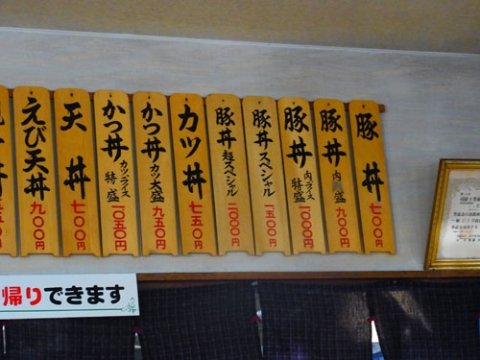 豚丼 七〇〇円
豚丼 肉盛 九五〇円
豚丼 肉・ライス特盛 一〇〇〇円
豚丼スペシャル 一五〇〇円
豚丼超スペシャル 二〇〇〇円
カツ丼 七五〇円
かつ丼 カツ大盛 九五〇円
かつ丼 カツ・ライス特盛 一〇五〇円
天丼 七〇〇円
えび天丼 九〇〇円
帰りできます